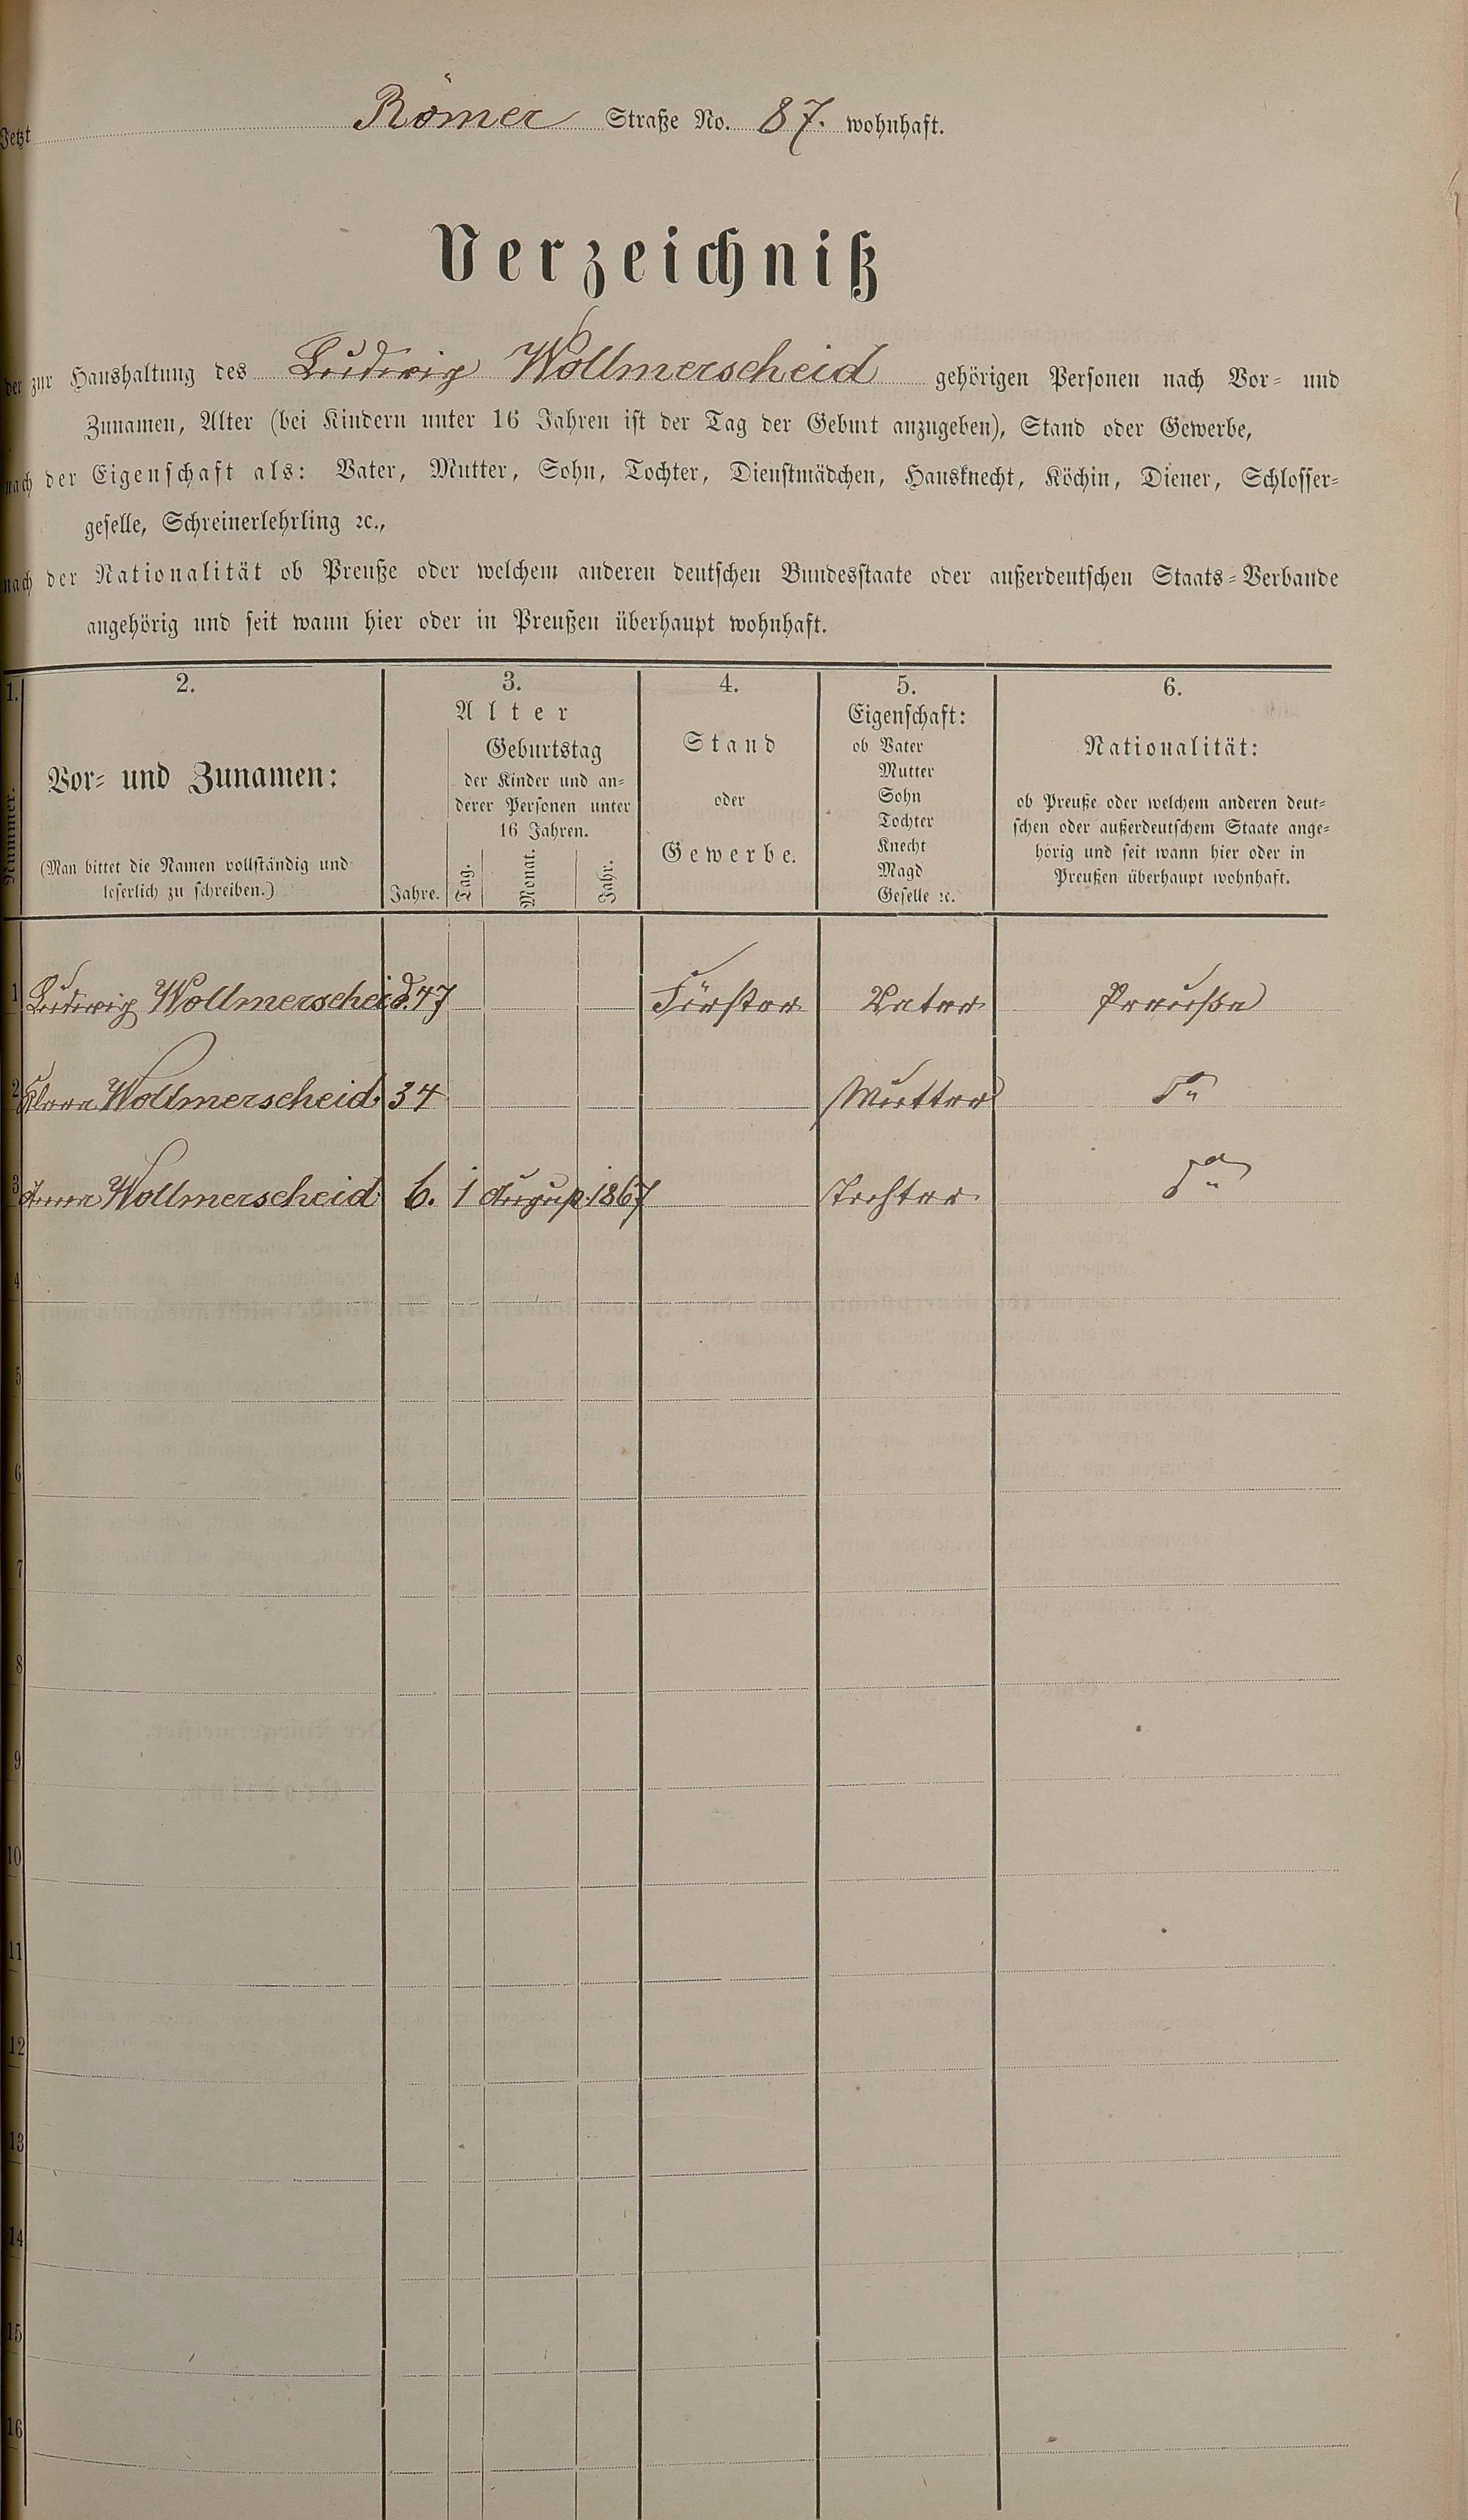 Jetzt Römer Straße No. 87. wohnhaft.
Verzeichniß
der zur Haushaltung des Ludwig Wollmerscheid gehörigen Personen nach Vor- und
Zunamen, Alter (bei Kindern unter 16 Jahren ist der Tag der Geburt anzugeben), Stand oder Gewerbe,
nach der Eigenschaft als: Vater, Mutter, Sohn, Tochter, Dienstmädchen, Hausknecht, Köchin, Diener, Schlosser-
geselle, Schreinerlehrling ꝛc.,
nach der Nationalität ob Preuße oder welchem anderen deutschen Bundesstaate oder außerdeutschen Staats-Verbande
angehörig und seit wann hier oder in Preußen überhaupt wohnhaft.
1.
Nummer.
2.
Vor- und Zunamen:
(Man bittet die Namen vollständig und
leserlich zu schreiben.)
3.
Alter
Geburtstag
der Kinder und an-
derer Personen unter
16 Jahren.
Jahre. Tag. Monat. Jahr.
4.
Stand
oder
Gewerbe.
5.
Eigenschaft:
ob Vater
Mutter
Sohn
Tochter
Knecht
Magd
Geselle ꝛc.
6.
Nationalität:
ob Preuße oder welchem anderen deut-
schen oder außerdeutschem Staate ange-
hörig und seit wann hier oder in
Preußen überhaupt wohnhaft.
1 Ludwig Wollmerscheid. 47 Förster Vater Preuße
2 Klara Wollmerscheid. 34 Mutter do
3 Anna Wollmerscheid. 6. 1 August 1867 Tochter do
4
5
6
7
8
9
10
11
12
13
14
15
16